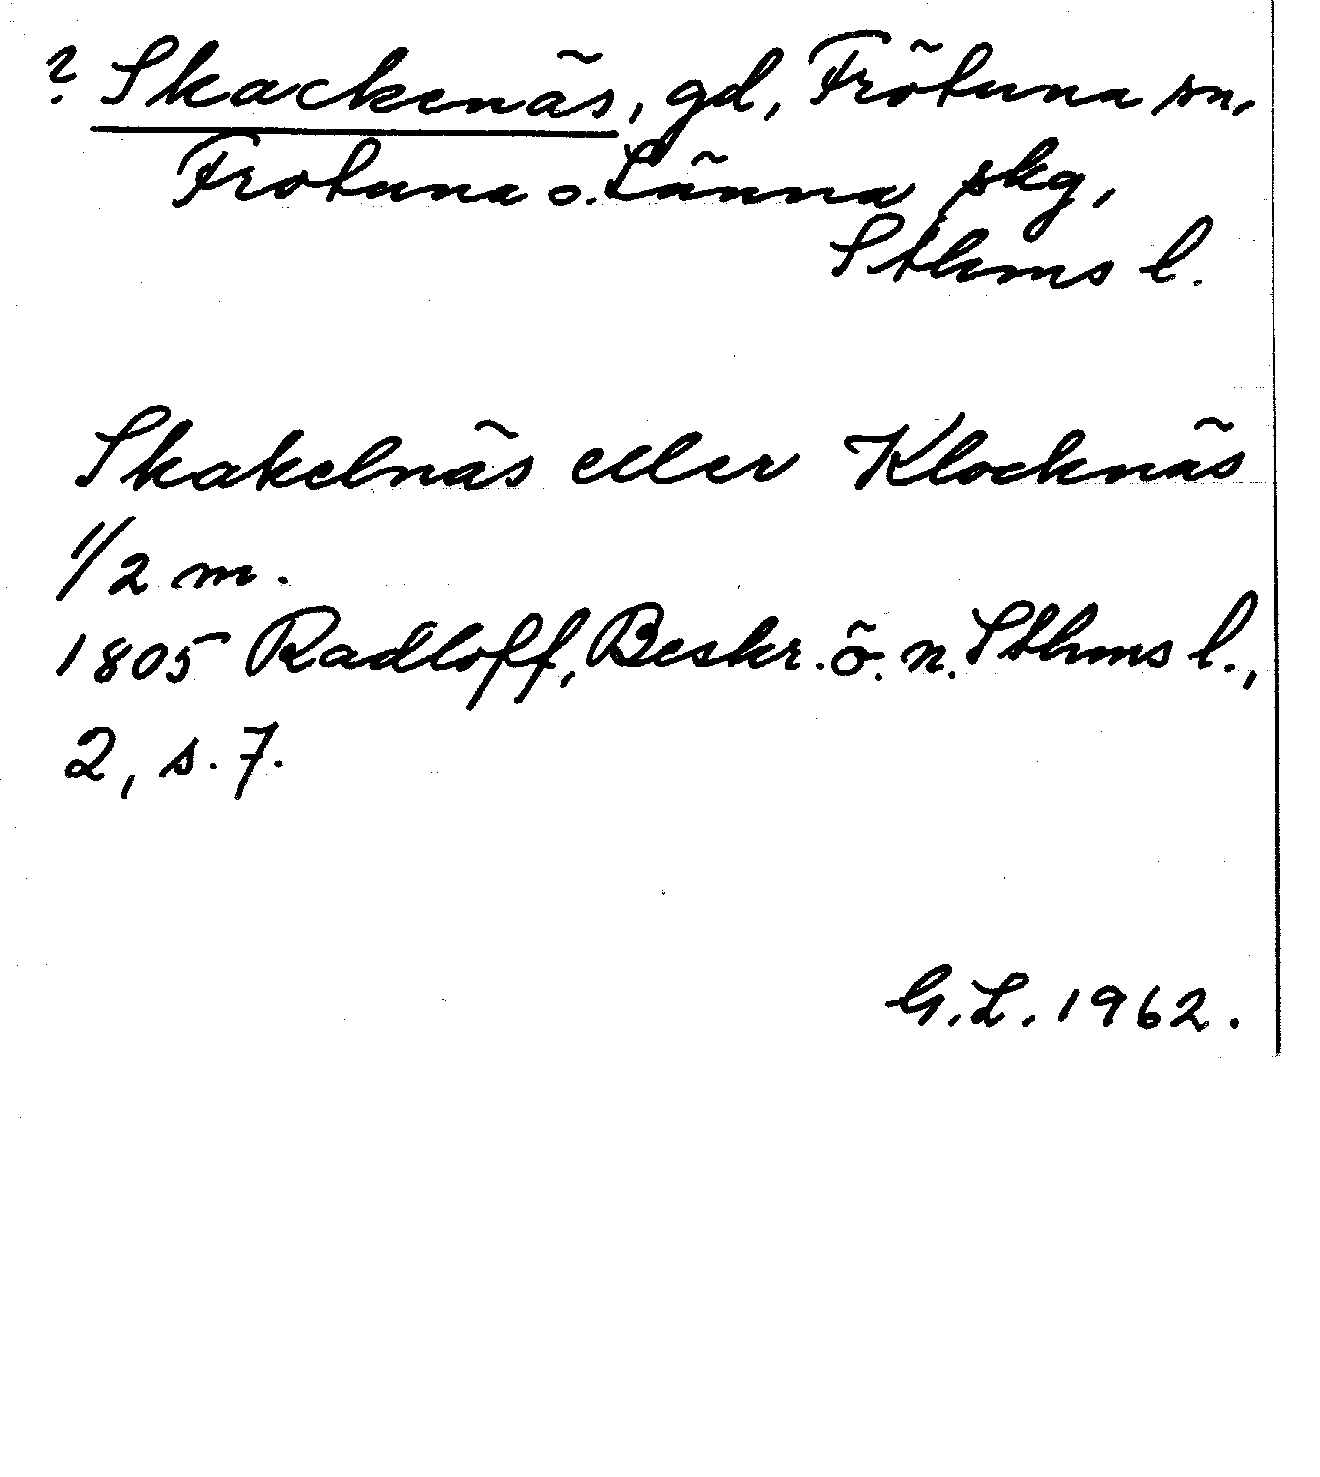 ? Skackenäs, gd, Frötuna sn,
Frötuna o. Länna skg,
Sthms l.
Skakelnäs eller Klocknäs
1/2 m.
1805 Radloff, Beskr. ö. n. Sthms l.,
2, s. 7.
G.L. 1962.